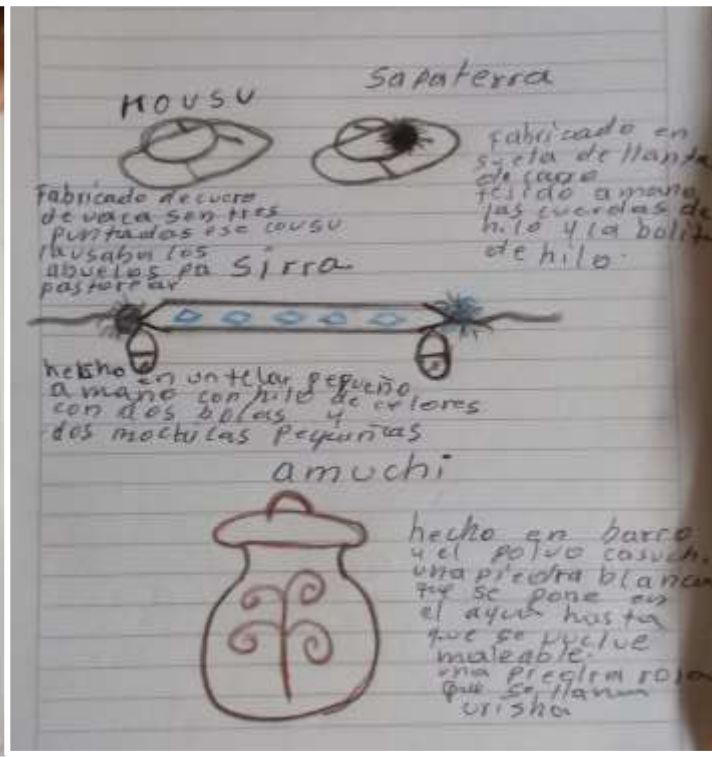 HOUSU
Sapaterra
Fabricado de cuero
de vaca son tres
puntadas ese cousu
lausabn los
abuelos pa
pastorear
fabricado en
suela de llanta
de carro
tejido a mano
las cuerdas de
hilo y la bolit
de hilo.
Sirra
hehho en un telar pequeño
a mano con hilo de colores
con dos bolas y
dos mochilas pequeñas
amuchi
hecho en barro
y el polvo casuch
una piedra blanca
que se pone en
el agua hasta
que se vuelve
maleable.
una piedra roja
que se llama
urisha